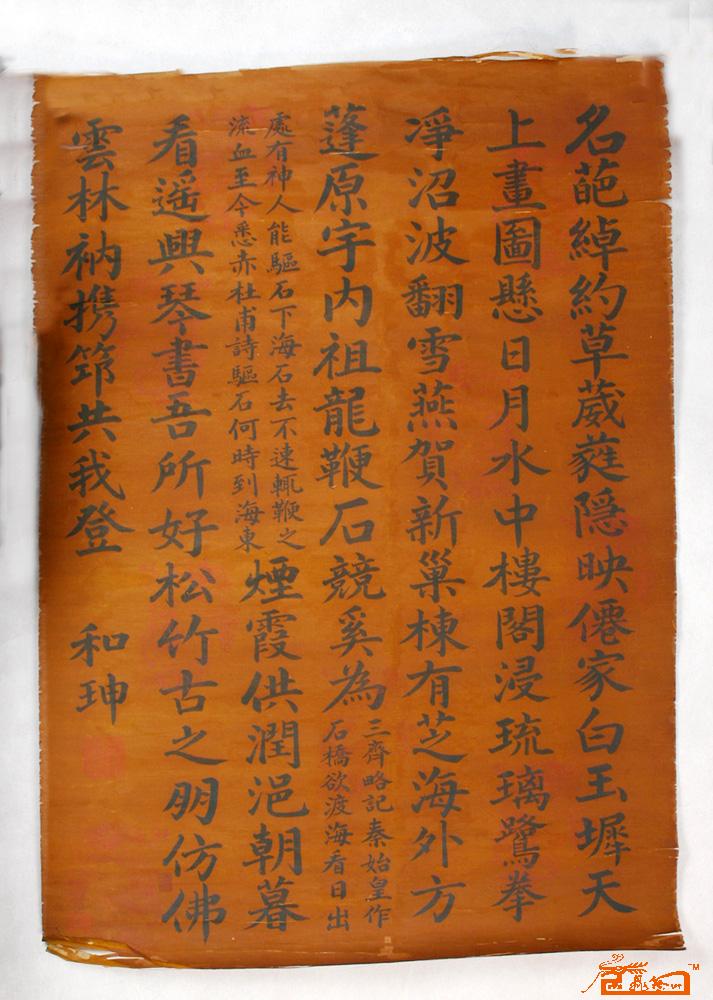 名葩綽約草葳蕤隠映僊家白玉墀天
上畫圖懸日月水中樓閣浸琉璃鷺拳
淨沼波翻雪燕賀新巢棟有芝海外方
蓬原宇内祖龍鞭石競奚為三齊略記秦始皇作
石橋欲渡海看日出
處有神人能驅石下海石去不速輒鞭之
流血至今悉赤杜甫詩驅石何時到海東
煙霞供潤浥朝暮
看遥興琴書吾所好松竹古之朋仿佛
雲林衲携筇共我登
和珅